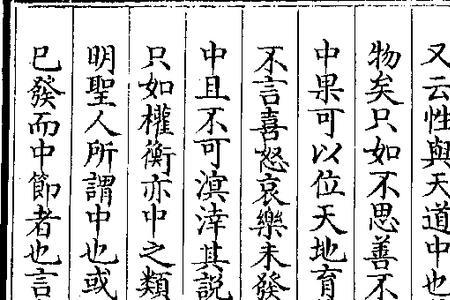 又云性與天道中也
物矣只如不思善不
中果可以位天地育
不言喜怒哀樂未發
中且不可溟涬其説
只如權衡亦中之類
明聖人所謂中也或
已發而中節者也言